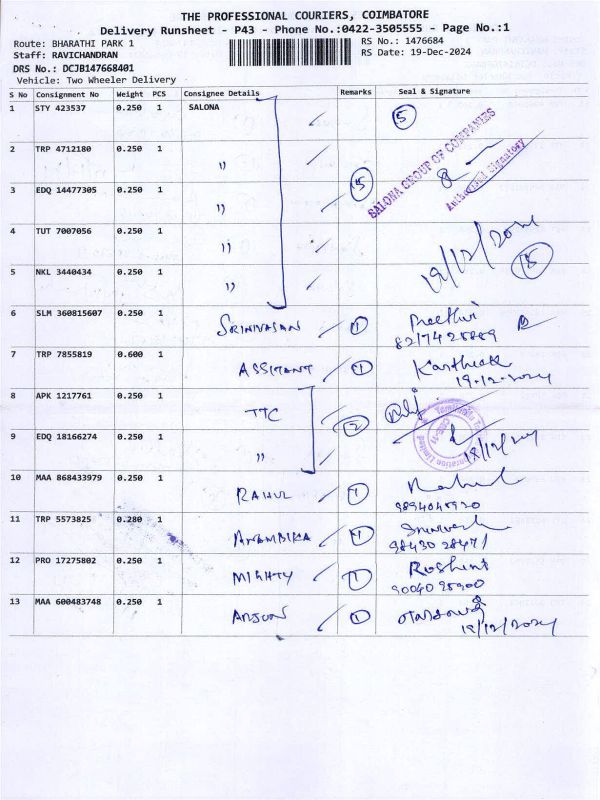 THE PROFESSIONAL COURIERS, COIMBATORE
Delivery Runsheet - P43 - Phone No.:0422-3505555 - Page No.:1
Route: BHARATHI PARK 1
Staff: RAVICHANDRAN
DRS No.: DCJB147668401
Vehicle: Two Wheeler Delivery
RS No.: 1476684
RS Date: 19-Dec-2024
S No Consignment No Weight PCS Consignee Details Remarks Seal & Signature
1 STY 423537 0.250 1 SALONA 5
2 TRP 4712180 0.250 1 " 5 SALONA GROUP OF COMPANIES
Authorised Signatory
3 EDQ 14477305 0.250 1 "
4 TUT 7007056 0.250 1 " 19/12/2024
5 NKL 3440434 0.250 1 " 5
6 SLM 360815607 0.250 1 SRINIVASAN 1 Preethi
7 TRP 7855819 0.600 1 ASSITANT 1 Karthick
19.12.2024
8 APK 1217761 0.250 1 TTC 2
9 EDQ 18166274 0.250 1 "
10 MAA 868433979 0.250 1 RAHUL 1 Rahul
11 TRP 5573825 0.280 1 1
9843028471
12 PRO 17275802 0.250 1 MIGHTY 1 Roshini
13 MAA 600483748 0.250 1 ARJUN 1
19/12/2024